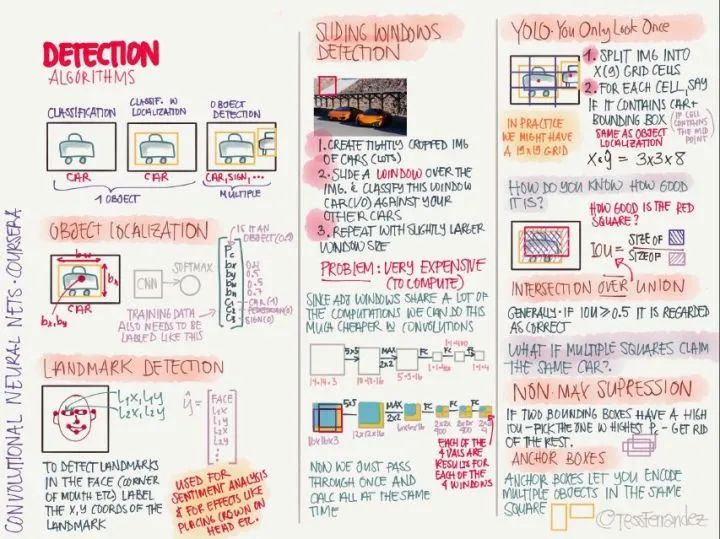 CONVOLUTIONAL NEURAL NETS · COURSERA
DETECTION
ALGORITHMS
CLASSIFICATION
CLASSIF. W
LOCALIZATION
OBJECT
DETECTION
CAR
CAR
CAR, SIGN, ...
1 OBJECT
MULTIPLE
OBJECT LOCALIZATION
bw
bh
bx,by
CAR
CNN
SOFTMAX
IS IT AN
OBJECT
Pc
bx
by
bh
bw
C1
C2
C3
0.5
0.7
CAR
PEDESTRIAN
SIGN
TRAINING DATA
ALSO NEEDS TO BE
LABELED LIKE THIS
LANDMARK DETECTION
l1x, l1y
l2x, l2y
ŷ =
FACE
l1x
l1y
l2x
l2y
...
TO DETECT LANDMARKS
IN THE FACE (CORNER
OF MOUTH ETC) LABEL
THE X,Y COORDS OF THE
LANDMARK
USED FOR
SENTIMENT ANALYSIS
& FOR EFFECTS LIKE
PLACING CROWN ON
HEAD ETC.
SLIDING WINDOWS
DETECTION
1. CREATE TIGHTLY CROPPED IMG
OF CARS (LOTS)
2. SLIDE A WINDOW OVER THE
IMG. & CLASSIFY THIS WINDOW
CAR(1/0) AGAINST YOUR
OTHER CARS
3. REPEAT WITH SLIGHTLY LARGER
WINDOW SIZE
PROBLEM: VERY EXPENSIVE
(TO COMPUTE)
WINDOWS SHARE A LOT OF
THE COMPUTATIONS WE CAN DO THIS
MUCH CHEAPER W CONVOLUTIONS
5×5
MAX
2×2
FC
FC
14×14×3
10×10×16
5×5×16
1×1×400
1×1×400
1×1×4
5×5
MAX
2×2
FC
FC
FC
16×16×3
12×12×16
6×6×16
2×2×
400
2×2×
400
2×2×
4
EACH OF THE
4 VALS ARE
RESULTS FOR
EACH OF THE
4 WINDOWS
NOW WE JUST PASS
THROUGH ONCE AND
CALC ALL AT THE SAME
TIME
YOLO · You Only Look Once
1. SPLIT IMG INTO
X(9) GRID CELLS
2. FOR EACH CELL, SAY
IF IT CONTAINS CAR+
BOUNDING BOX
(IF CELL
CONTAINS
THE MID
POINT)
IN PRACTICE
WE MIGHT HAVE
A 19×19 GRID
SAME AS OBJECT
LOCALIZATION
= 3×3×8
HOW DO YOU KNOW HOW GOOD
IT IS?
HOW GOOD IS THE RED
SQUARE?
IOU =
SIZE OF
SIZE OF
INTERSECTION OVER UNION
GENERALLY · IF IOU ≥ 0.5 IT IS REGARDED
AS CORRECT
WHAT IF MULTIPLE SQUARES CLAIM
THE SAME CAR?
NON-MAX SUPRESSION
IF TWO BOUNDING BOXES HAVE A HIGH
IOU - PICK THE ONE W HIGHEST Pc - GET RID
OF THE REST.
ANCHOR BOXES
ANCHOR BOXES LET YOU ENCODE
MULTIPLE OBJECTS IN THE SAME
SQUARE
@TessFerrandez